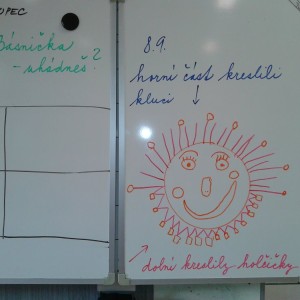 OPEC
Básnička
- uhádneš?
8.9.
horní část kreslili
kluci
dolní kreslily holčičky